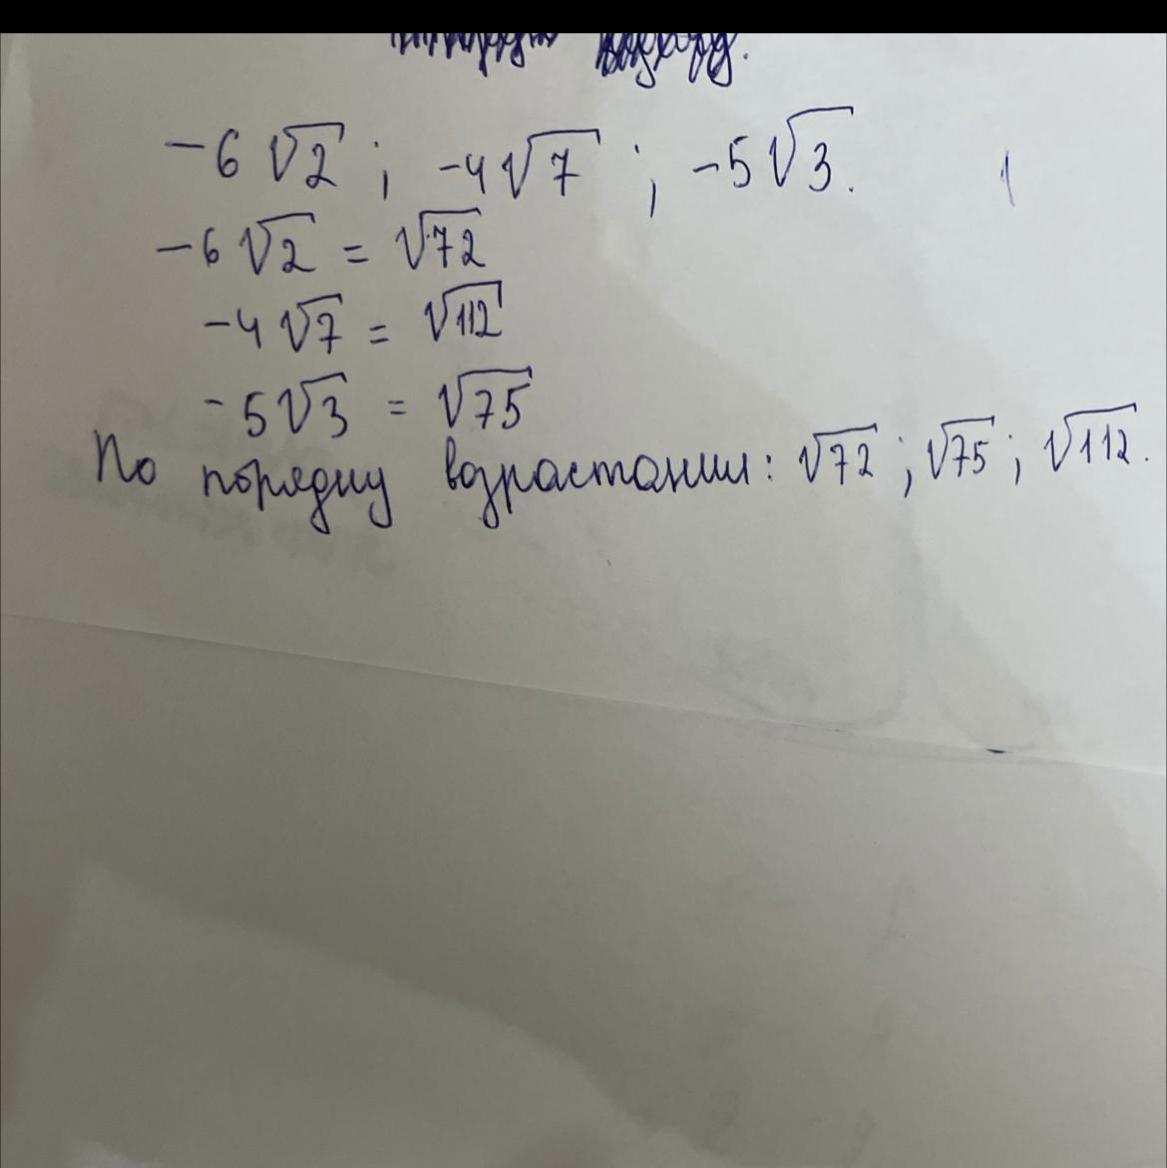 -6√2 ; -4√7 ; -5√3.
-6√2 = √72
-4√7 = √112
-5√3 = √75
По порядку возрастании: √72 ; √75 ; √112.